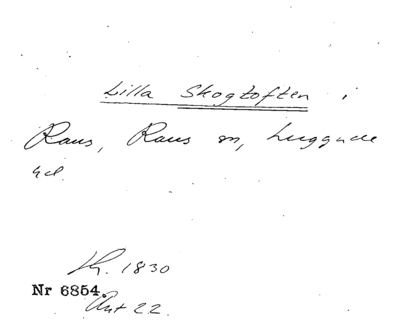 Lilla Skogtoften i
Raus, Raus sn, Luggude
hd.
Lh. 1830
Nr 6854.
Akt 22.